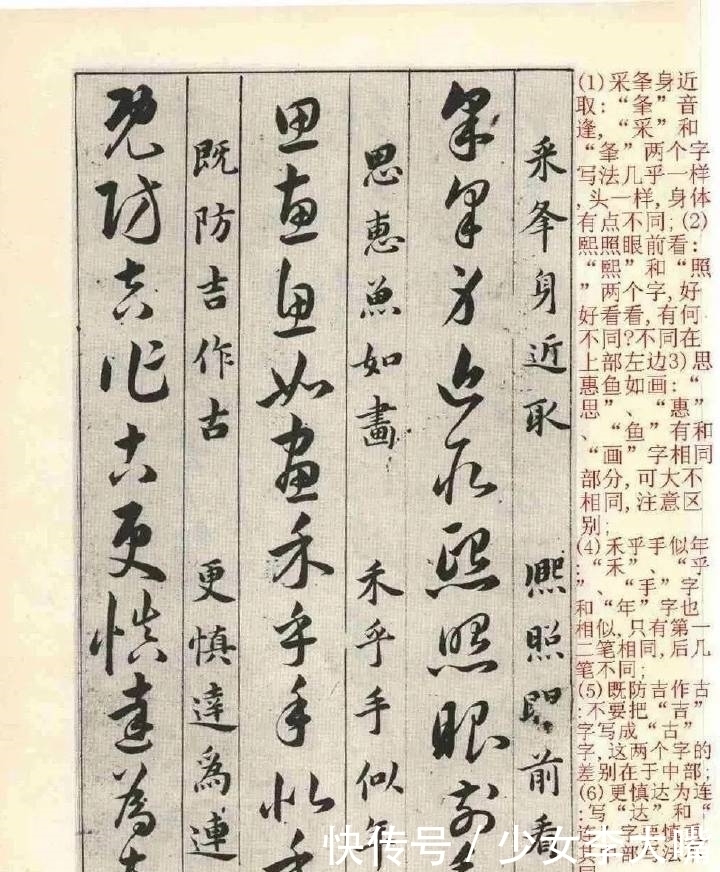 (1)采夆身近
取:“夆”音
逢,“采”和
“夆”两个字
写法几乎一样
,头一样,身体
有点不同;(2)
熙照眼前看:
“熙”和“照
”两个字,好
好看看,有何
不同?不同在
上部左边3)思
惠鱼如画:“
思”、“惠”
、“鱼”有和
“画”字相同
部分,可大不
相同,注意区
别;
(4)禾乎手似年
:“禾”、“乎
”、“手”字
和“年”字也
相似,只有第一
二笔相同,后几
笔不同;
(5)既防吉作古
:不要把“吉”
字写成“古”
字,这两个字的
差别在于中部;
(6)更慎达为连
:写“达”和“
采夆身近取 熙照眼前看
采夆身近取熙照眼前
思惠魚如畫 禾乎手似年
思惠魚如畫禾乎手似年
既防吉作古 更慎達為連
既防吉作古更慎達為
快传号 / 少女李大嘴